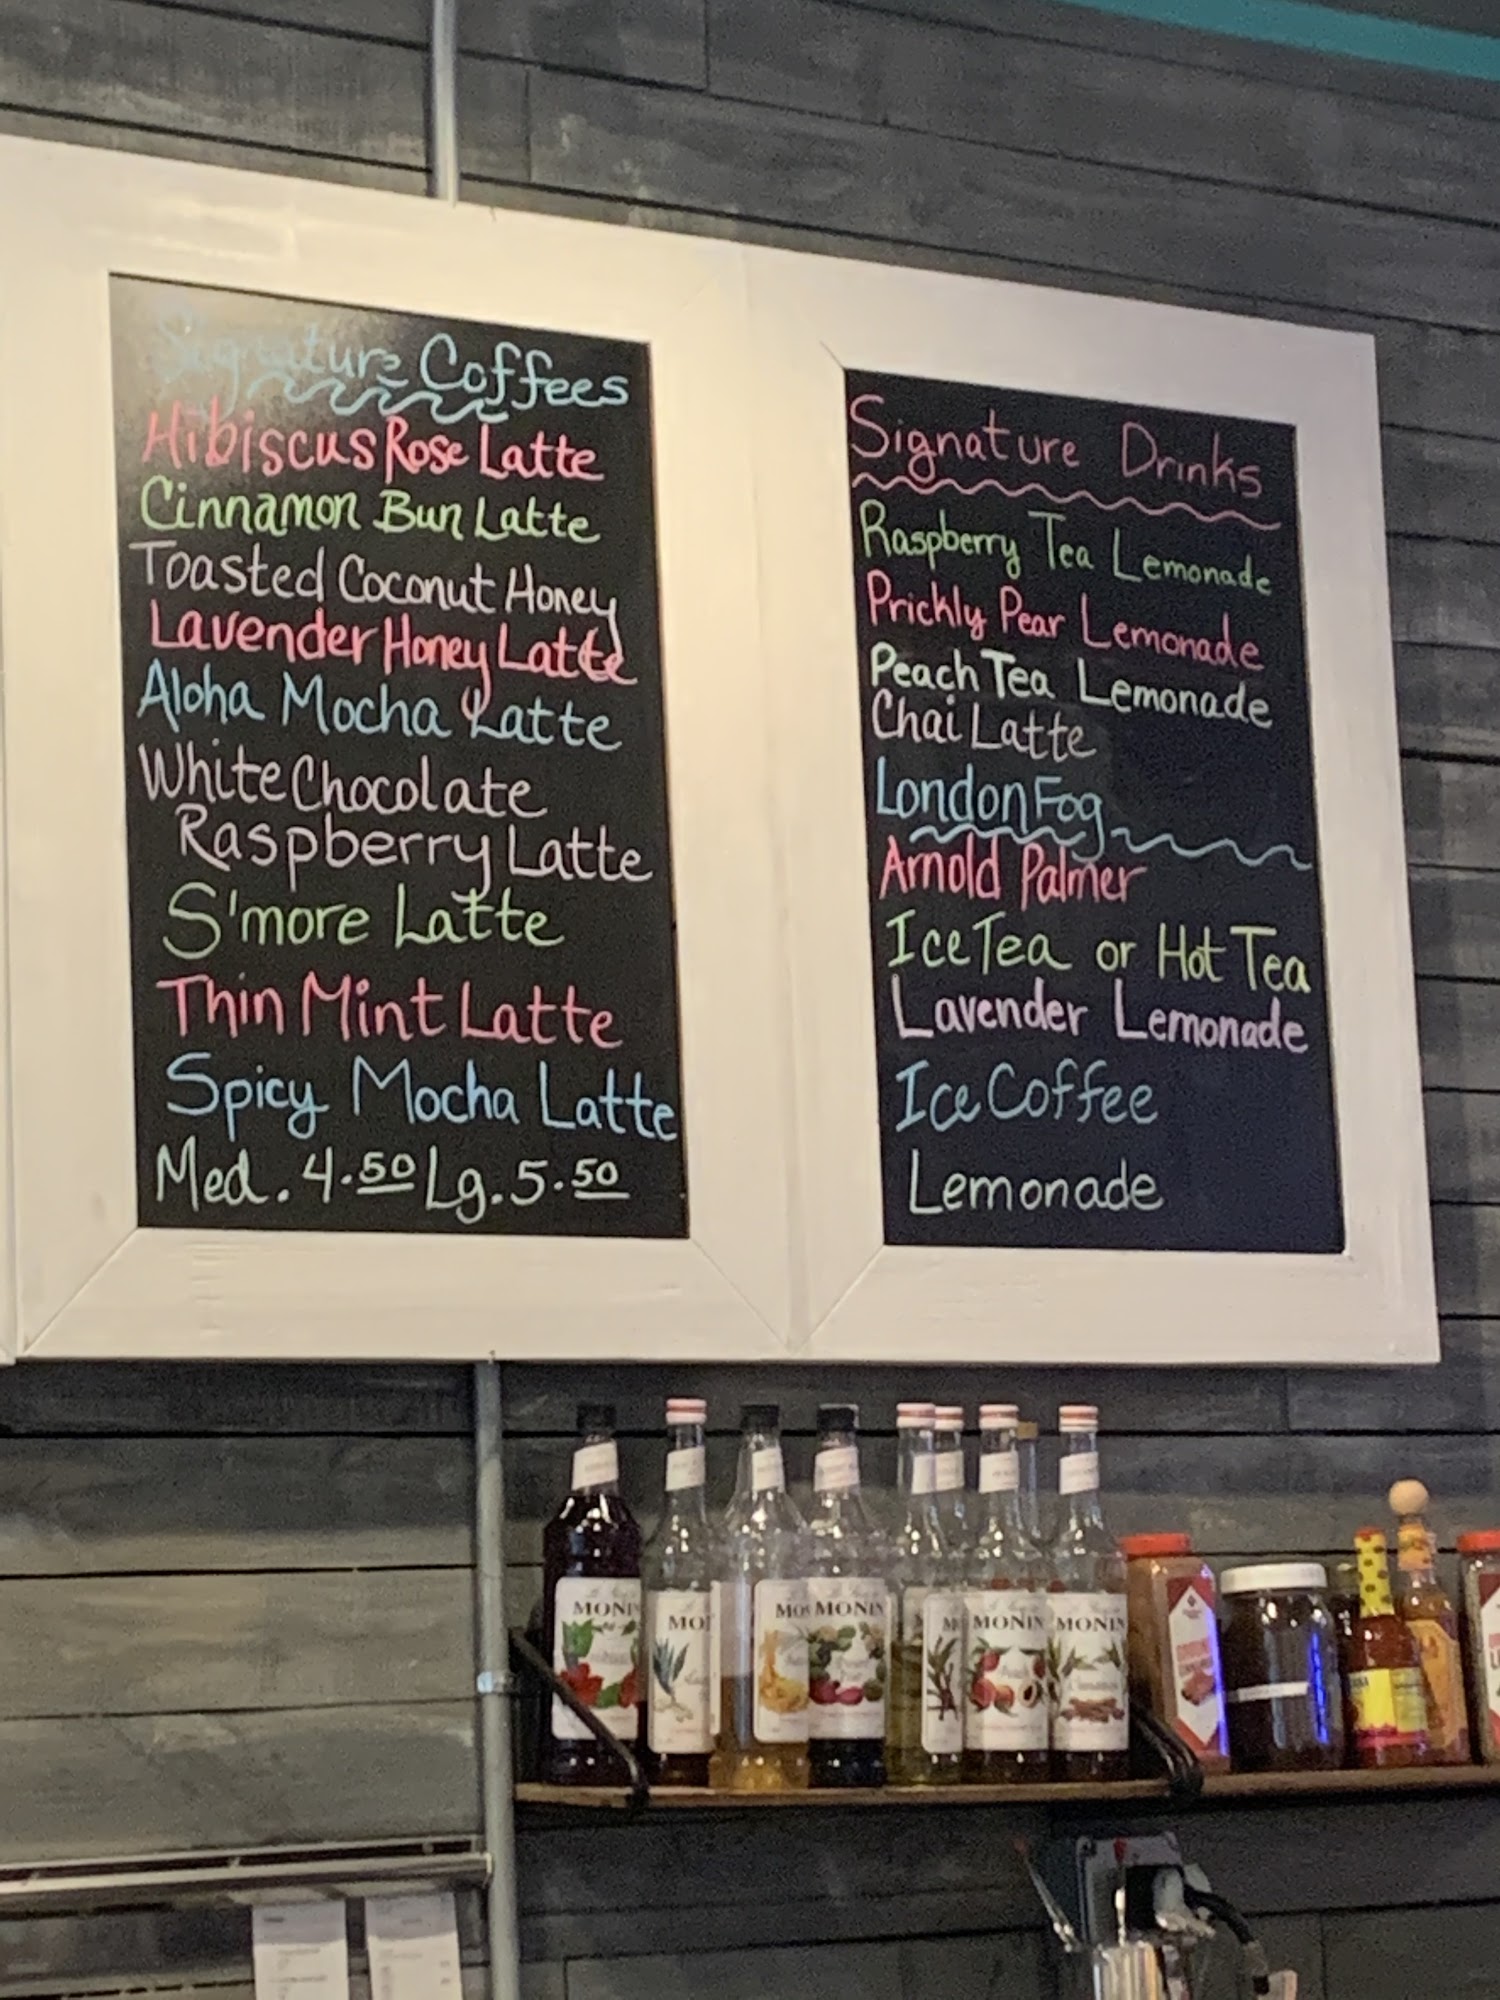 Signature Coffees
Hibiscus Rose Latte
Cinnamon Bun Latte
Toasted Coconut Honey
Lavender Honey Latte
Aloha Mocha Latte
White Chocolate
Raspberry Latte
S'more Latte
Thin Mint Latte
Spicy Mocha Latte
Med. 4.50 Lg. 5.50
Signature Drinks
Raspberry Tea Lemonade
Prickly Pear Lemonade
Peach Tea Lemonade
Chai Latte
London Fog
Arnold Palmer
Ice Tea or Hot Tea
Lavender Lemonade
Ice Coffee
Lemonade
MONIN
MONIN
MONIN
MONIN